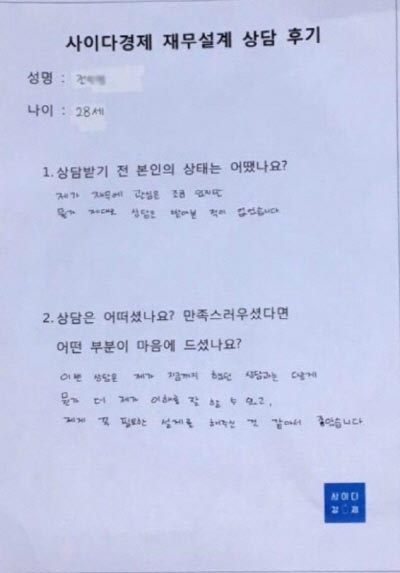 사이다경제 재무설계 상담 후기
성명 :
나이 : 28세
1. 상담받기 전 본인의 상태는 어땠나요?
제가 재무에 관심은 조금 있지만
뭔가 제대로 상담은 받아본 적이 없었습니다
2. 상담은 어떠셨나요? 만족스러우셨다면
어떤 부분이 마음에 드셨나요?
이번 상담은 제가 지금까지 했던 상담과는 다르게
뭔가 더 제가 이해를 잘 할 수 있고,
제게 꼭 필요한 설계를 해주신 것 같아서 좋았습니다
사이다
경제